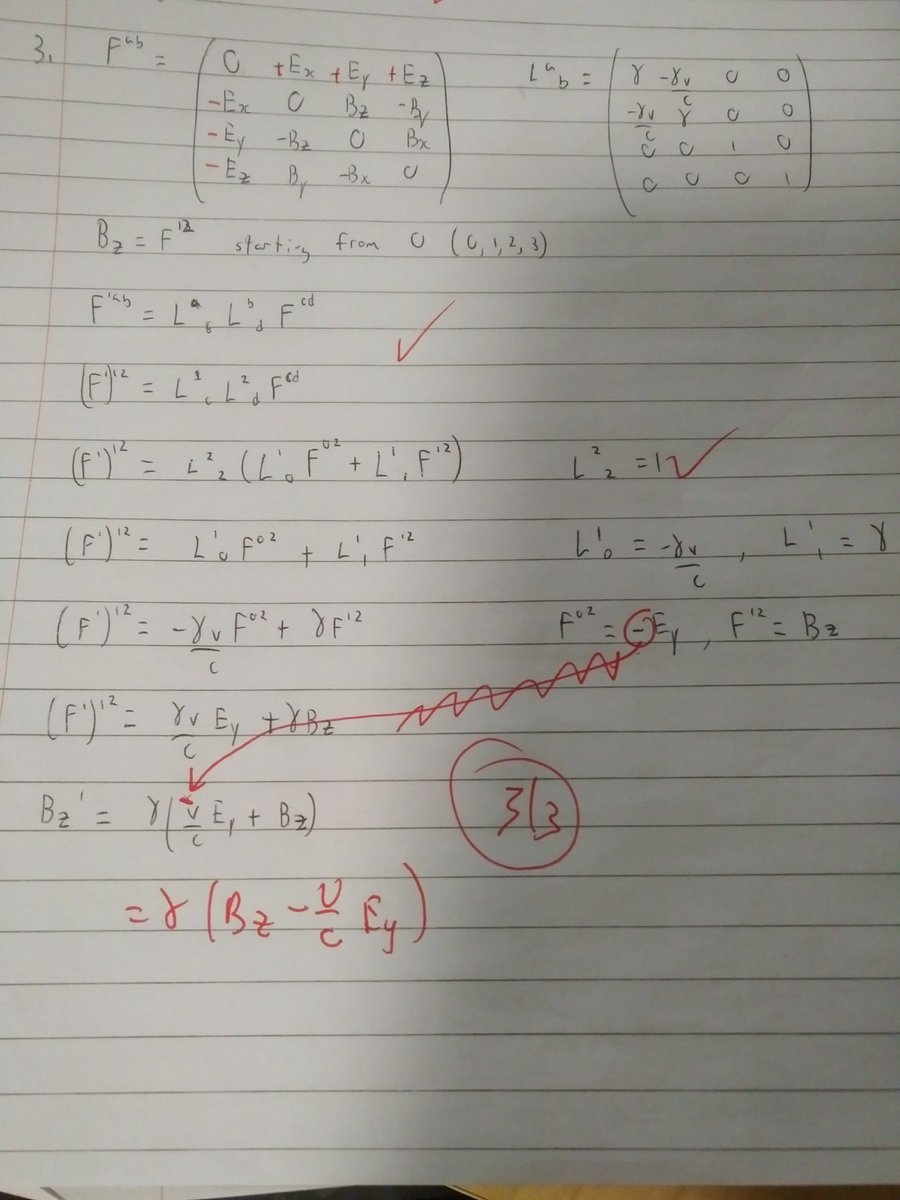 3. F^ab = ( 0 +Ex +Ey +Ez L^a_b = ( γ -γv/c 0 0
-Ex 0 Bz -By -γv/c γ 0 0
-Ey -Bz 0 Bx 0 0 1 0
-Ez By -Bx 0 ) 0 0 0 1 )
Bz = F^12 starting from 0 (0, 1, 2, 3)
F'^ab = L^a_c L^b_d F^cd
(F')^12 = L^1_c L^2_d F^cd
(F')^12 = L^2_2 (L^1_0 F^02 + L^1_1 F^12) L^2_2 = 1
(F')^12 = L^1_0 F^02 + L^1_1 F^12 L^1_0 = -γv/c , L^1_1 = γ
(F')^12 = -γv/c F^02 + γF^12 F^02 = -Ey , F^12 = Bz
(F')^12 = γv/c Ey + γBz
Bz' = γ(v/c Ey + Bz) 3/3
= γ (Bz - v/c Ey)